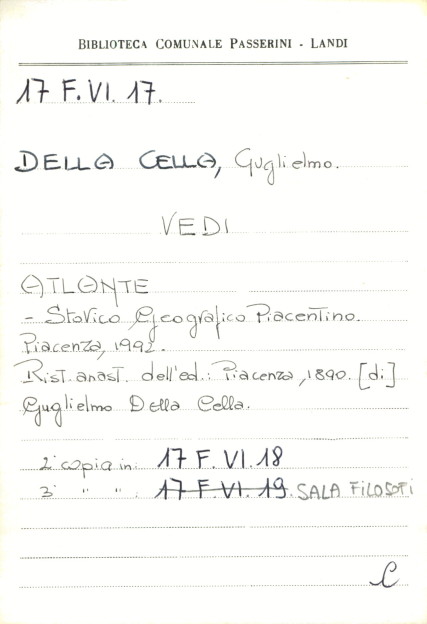 BIBLIOTECA COMUNALE PASSERINI - LANDI
17 F. VI. 17.
DELLA CELLA, Guglielmo.
VEDI
ATLANTE
- Storico Geografico Piacentino.
Piacenza, 1992.
Rist. anast. dell'ed.: Piacenza, 1890. [di]
Guglielmo Della Cella.
2ª copia in: 17 F. VI. 18
3ª " " : 17 F. VI. 19. SALA FILOSOFI
C